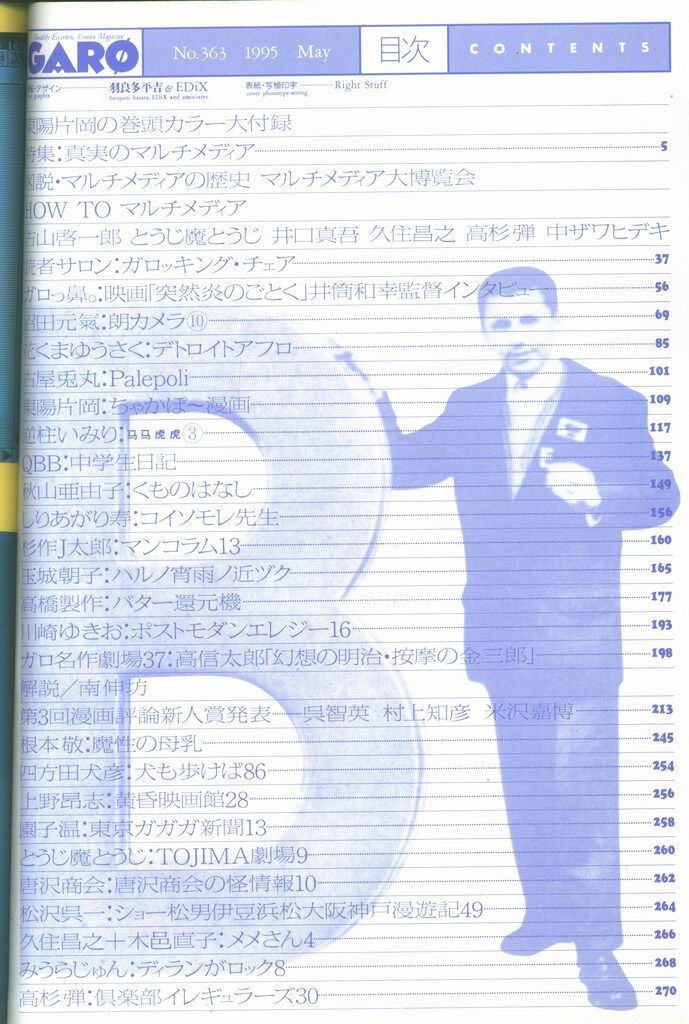 Monthly Eccentric Comics Magazine
GARØ
No.363 1995 May
目次
CONTENTS
デザイン
羽良多平吉&EDiX
heiquiti harata, EDiX and associates.
表紙・写植印字
cover phototype-setting
Right Stuff
東陽片岡の巻頭カラー大付録
特集:真実のマルチメディア 5
図説・マルチメディアの歴史 マルチメディア大博覧会
HOW TO マルチメディア
古山啓一郎 とうじ魔とうじ 井口真吾 久住昌之 高杉弾 中ザワヒデキ
読者サロン:ガロッキング・チェア 37
ガロっ鼻。:映画「突然炎のごとく」井筒和幸監督インタビュー 56
沼田元氣:朗カメラ⑩ 69
花くまゆうさく:デトロイトアフロ 85
古屋兎丸:Palepoli 101
東陽片岡:ちゃかぽ〜漫画 109
逆柱いみり:马马虎虎③ 117
QBB:中学生日記 137
秋山亜由子:くものはなし 149
しりあがり寿:コイソモレ先生 156
杉作J太郎:マンコラム13 160
玉城朝子:ハルノ宵雨ノ近ヅク 165
高橋製作:バター還元機 177
川崎ゆきお:ポストモダンエレジー16 193
ガロ名作劇場37:高信太郎「幻想の明治・按摩の金三郎」 198
解説/南伸坊
第3回漫画評論新人賞発表――呉智英 村上知彦 米沢嘉博 213
根本敬:魔性の母乳 245
四方田犬彦:犬も歩けば86 254
上野昂志:黄昏映画館28 256
園子温:東京ガガガ新聞13 258
とうじ魔とうじ:TOJIMA劇場9 260
唐沢商会:唐沢商会の怪情報10 262
松沢呉一:ショー松男伊豆浜松大阪神戸漫遊記49 264
久住昌之+木邑直子:メメさん4 266
みうらじゅん:ディランがロック8 268
高杉弾:倶楽部イレギュラーズ30 270